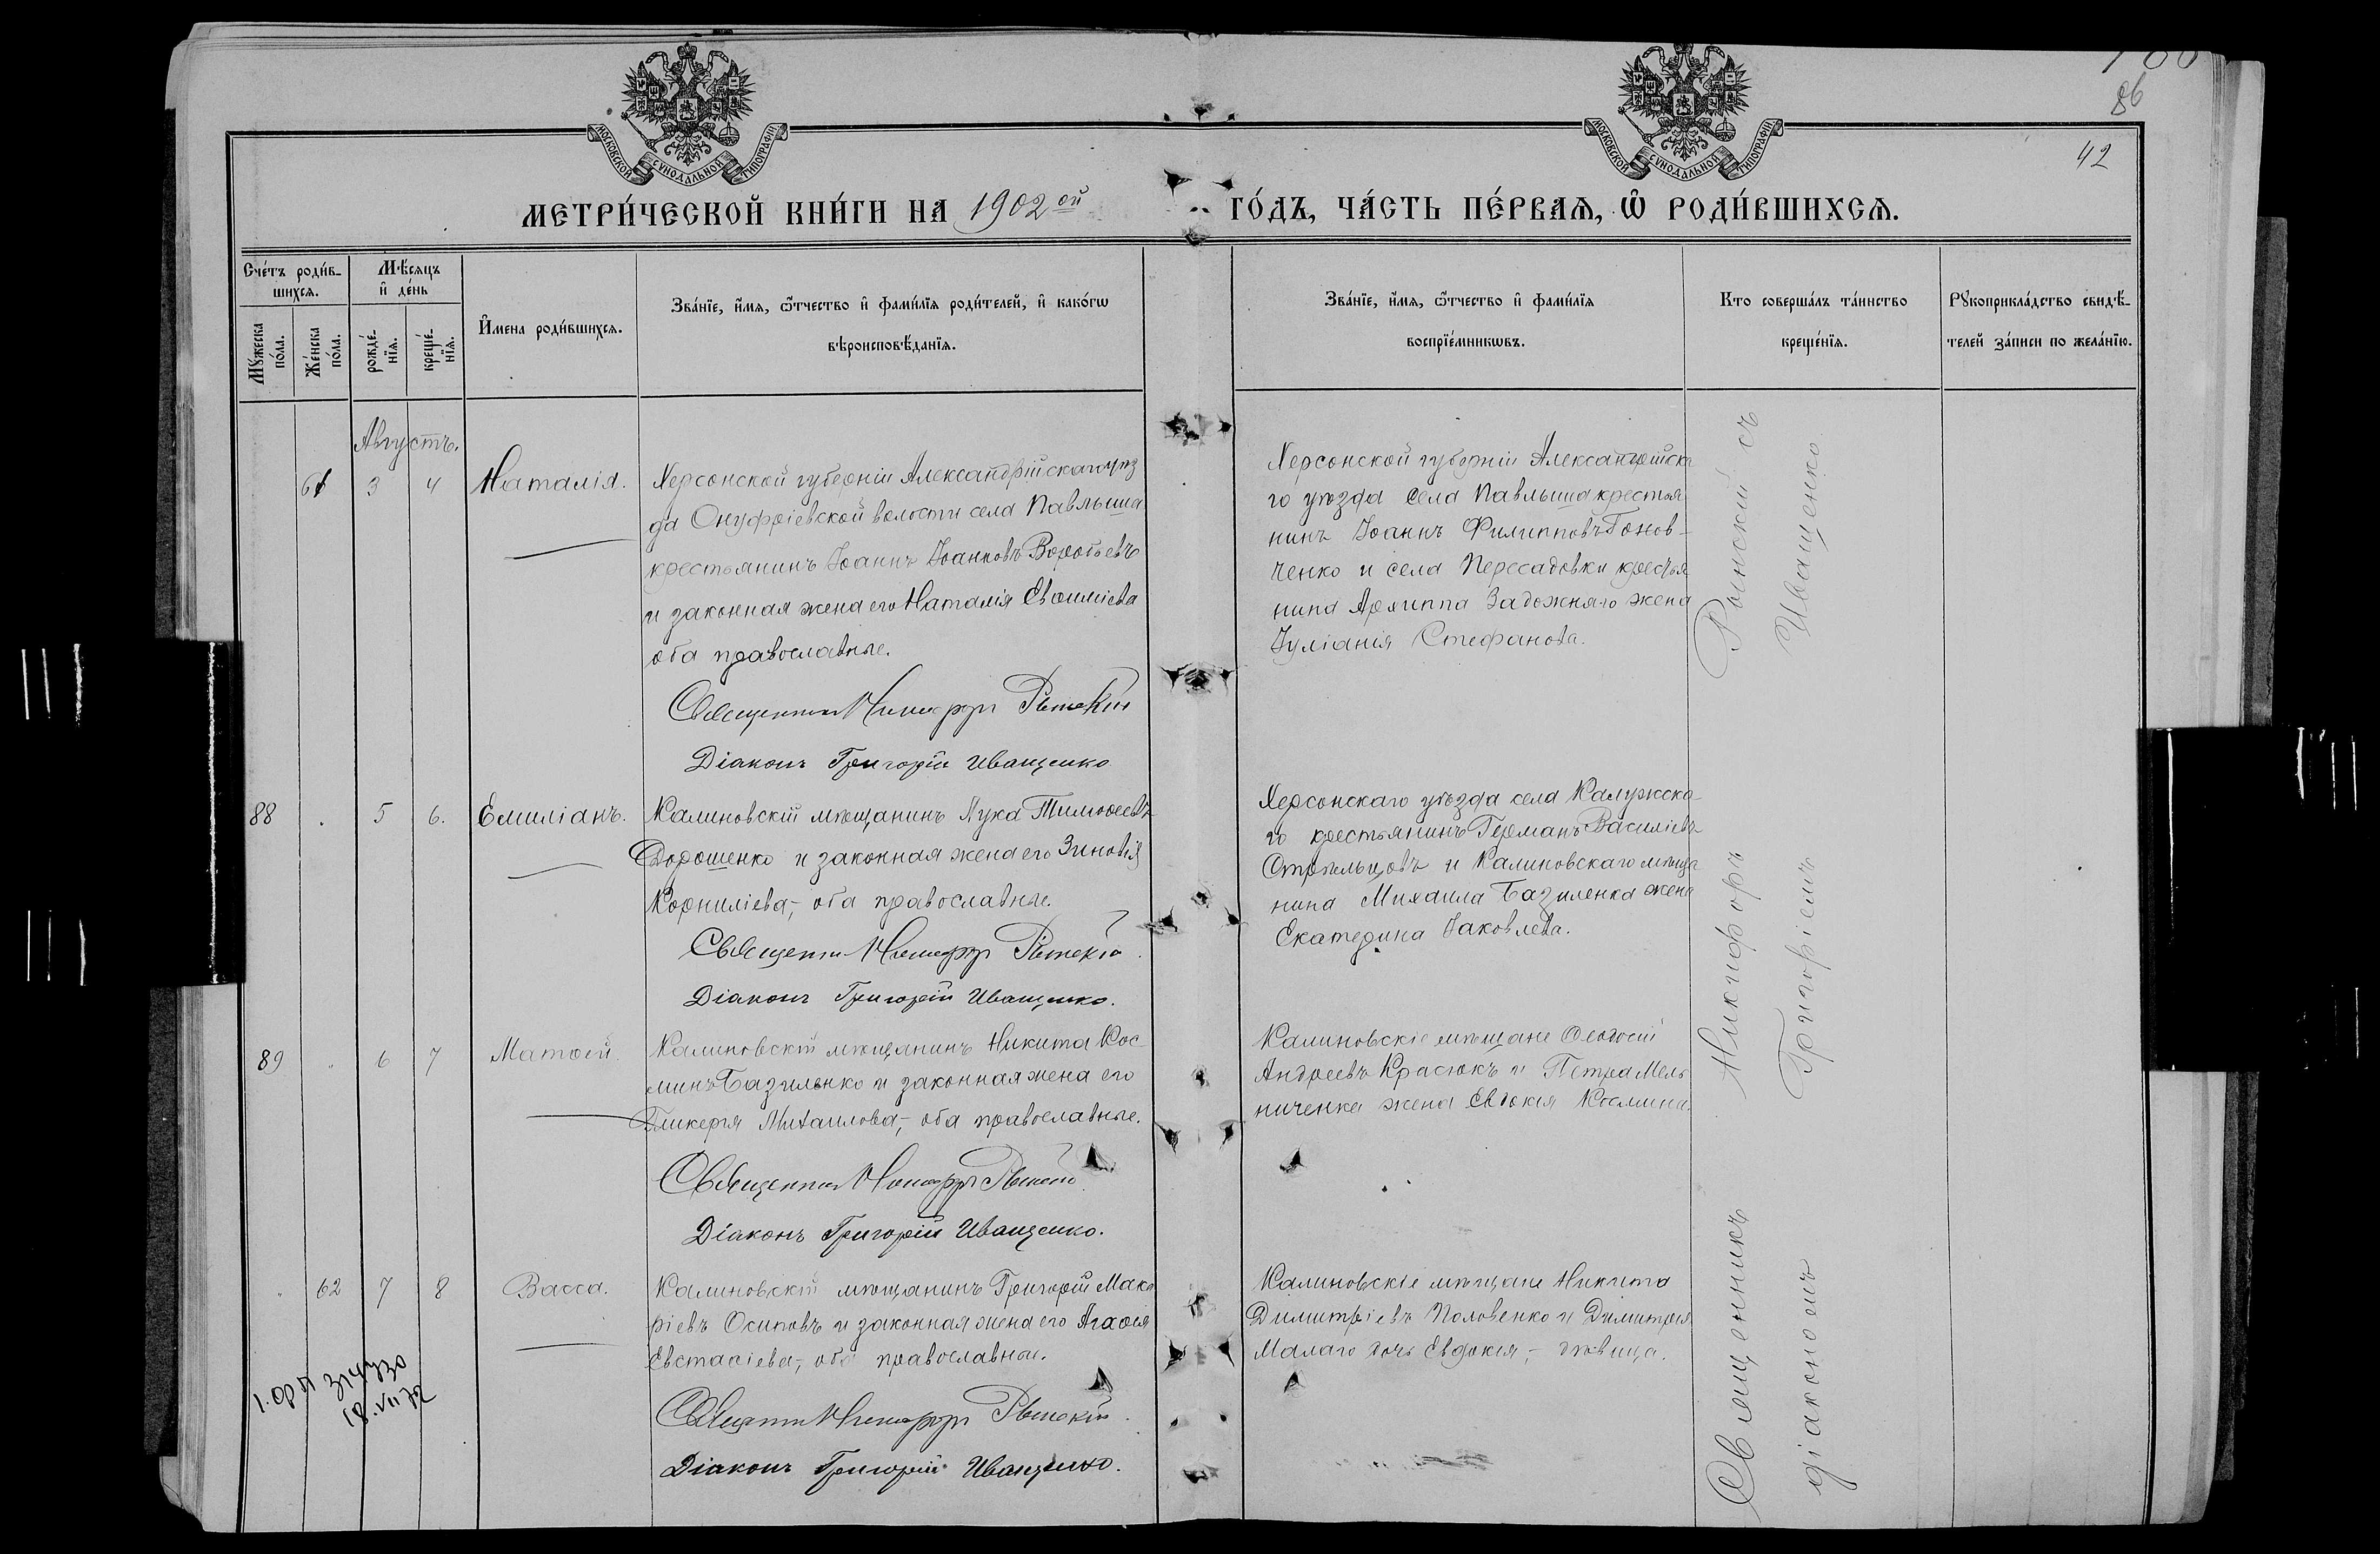 МОСКОВСКОЙ СѴНОДАЛЬНОЙ ТИПОГРАФІИ
МОСКОВСКОЙ СѴНОДАЛЬНОЙ ТИПОГРАФІИ
86
42
МЕТРИ́ЧЕСКОЙ КНИ́ГИ НА 1902ой ГО́ДЪ, ЧА́СТЬ ПЕ́РВАѦ, Ѽ РОДИ́ВШИХСѦ.
Сче́тъ роди́в-
шихсѧ.
Мꙋ́жеска по́ла.
Же́нска по́ла.
Мѣ́сѧцъ
и҆ де́нь
рожде́-
нїѧ.
креще́-
нїѧ.
И҆мена̀ роди́вшихсѧ.
Зва́нїе, и҆́мѧ, ѻ҆́тчество и҆ фами́лїѧ роди́телей, и҆ како́гѡ
вѣроисповѣ́данїѧ.
Зва́нїе, и҆́мѧ, ѻ҆́тчество и҆ фами́лїѧ
воспрїе́мникѡвъ.
Кто соверша́лъ та́инство
креще́нїѧ.
Рꙋкоприкла́дство свидѣ́-
телей за́писи по жела́нїю.
Августъ.
61 3 4 Наталія.
Херсонской губерніи Александрійскаго уѣз
да Онуфріевской волости села Павлыша
крестьянинъ Іоаннъ Іоанновъ Воробьевъ
и законная жена его Наталія Евѳиміева
оба православные.
Священникъ Никифоръ
Діаконъ Григорій Иващенко
Херсонской губерніи Александрійска
го уѣзда села Павлыша крестья
нинъ Іоаннъ Филипповъ
ченко и села Пересадовки крестья
нина Архиппа Задожняго жена
Іуліанія Стефанова.
88 5 6. Емиліанъ.
Калиновскій мѣщанинъ Лука Тимоѳеевъ
Дорошенко и законная жена его Зиновія
Корниліева,- оба православные.
Священникъ Никифоръ
Діаконъ Григорій Иващенко.
Херсонскаго уѣзда села Калужска
го крестьянинъ Германъ Василіевъ
Стрѣльцовъ и Калиновскаго мѣща
нина Михаила Базиленка жена
Екатерина Іаковлева.
89 6 7 Матѳей.
Калиновскій мѣщанинъ Никита Кос-
минъ Базиленко и законная жена его
Гликерія Михаилова,- оба православные.
Священникъ Никифоръ
Діаконъ Григорій Иващенко.
Калиновскіе мѣщане Ѳеодосій
Андреевъ Красюкъ и Петра Мель
ниченка жена Евдокія Космина.
62 7 8 Васса.
Калиновскій мѣщанинъ Григорій Мака
ріевъ Осиповъ и законная жена его Агаѳія
Евстаѳіева,- оба православные.
Священникъ Никифоръ
Діаконъ Григорій Иващенко.
Калиновскіе мѣщане Никита
Димитріевъ Половенко и Димитрія
Малаго дочь Евдокія,- дѣвица.
Священникъ Никифоръ съ
діакономъ Григоріемъ Иващенко.